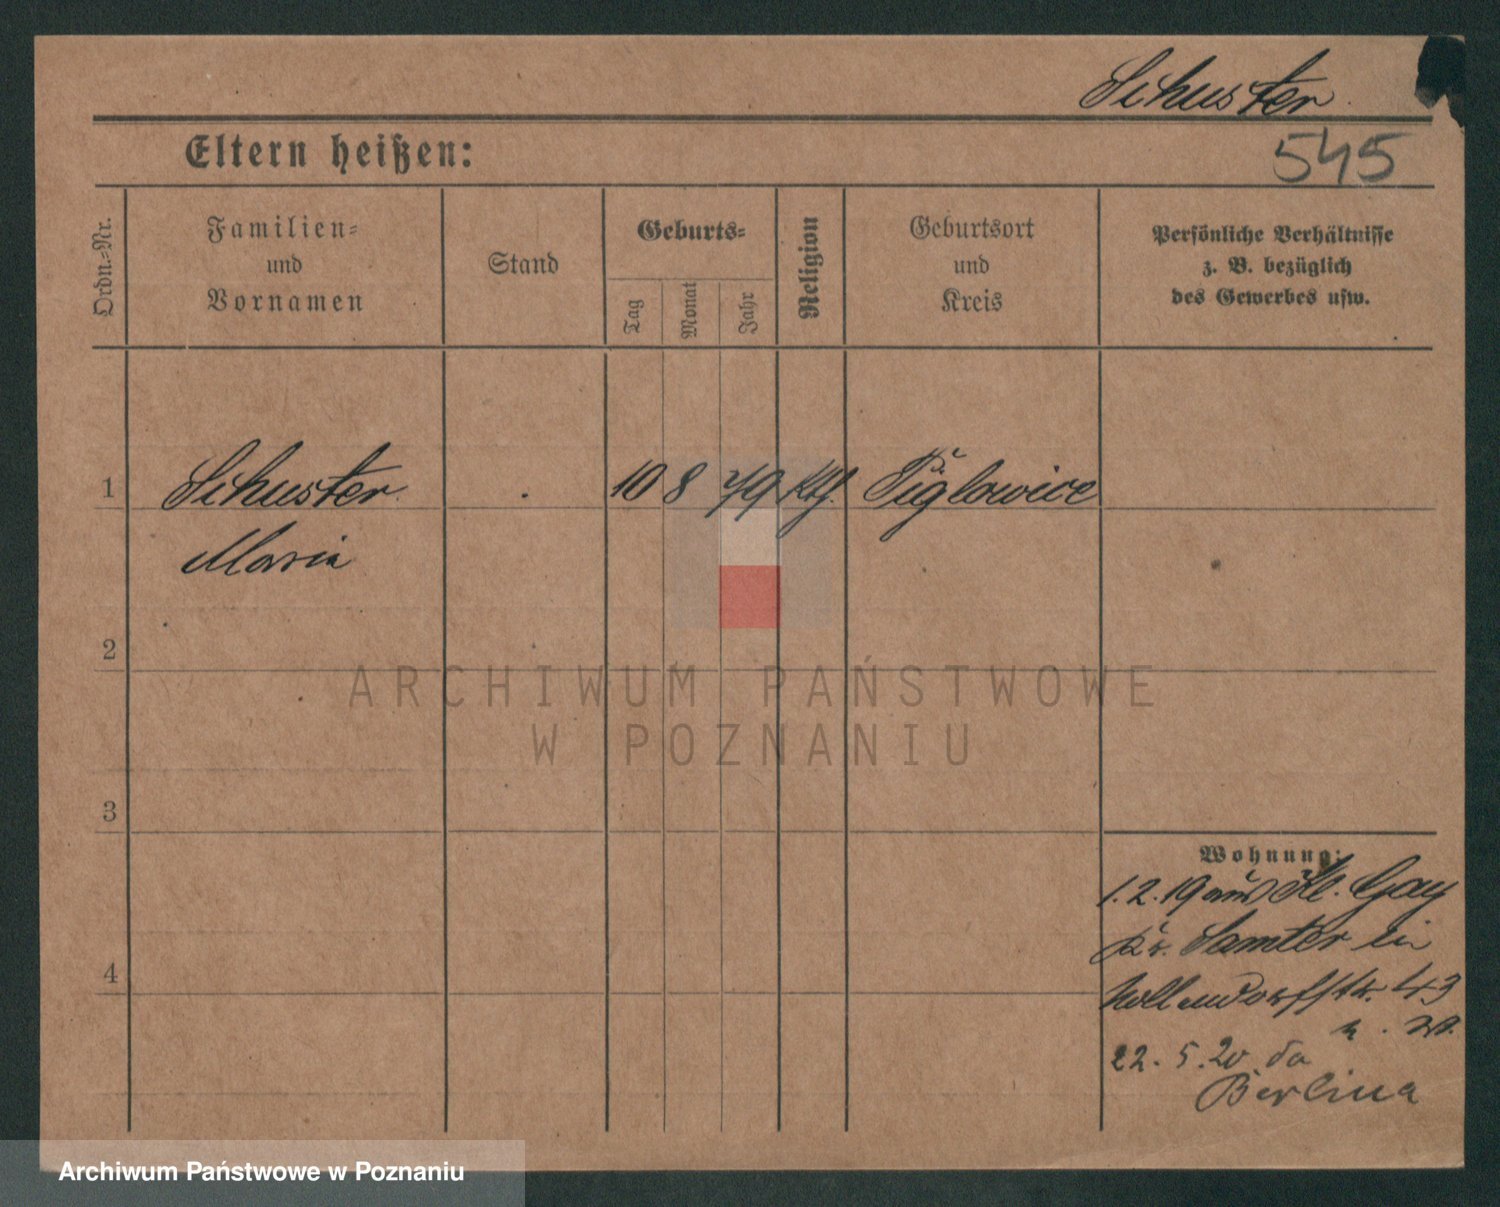 Schuster
Eltern heißen:
545
Ordn.-Nr.
Familien-
und
Vornamen
Stand
Geburts-
Tag
Monat
Jahr
Religion
Geburtsort
und
Kreis
Persönliche Verhältnisse
z. B. bezüglich
des Gewerbes usw.
1 Schuster 10 8 79 Kth. Piglowice
Maria
2
3
4
ARCHIWUM PAŃSTWOWE
W POZNANIU
Wohnung:
1.2.19 aus Kl. Gay
Kr. Samter in
Hollendorfstr. 43
22.5.20 do
Berlina
Archiwum Państwowe w Poznaniu